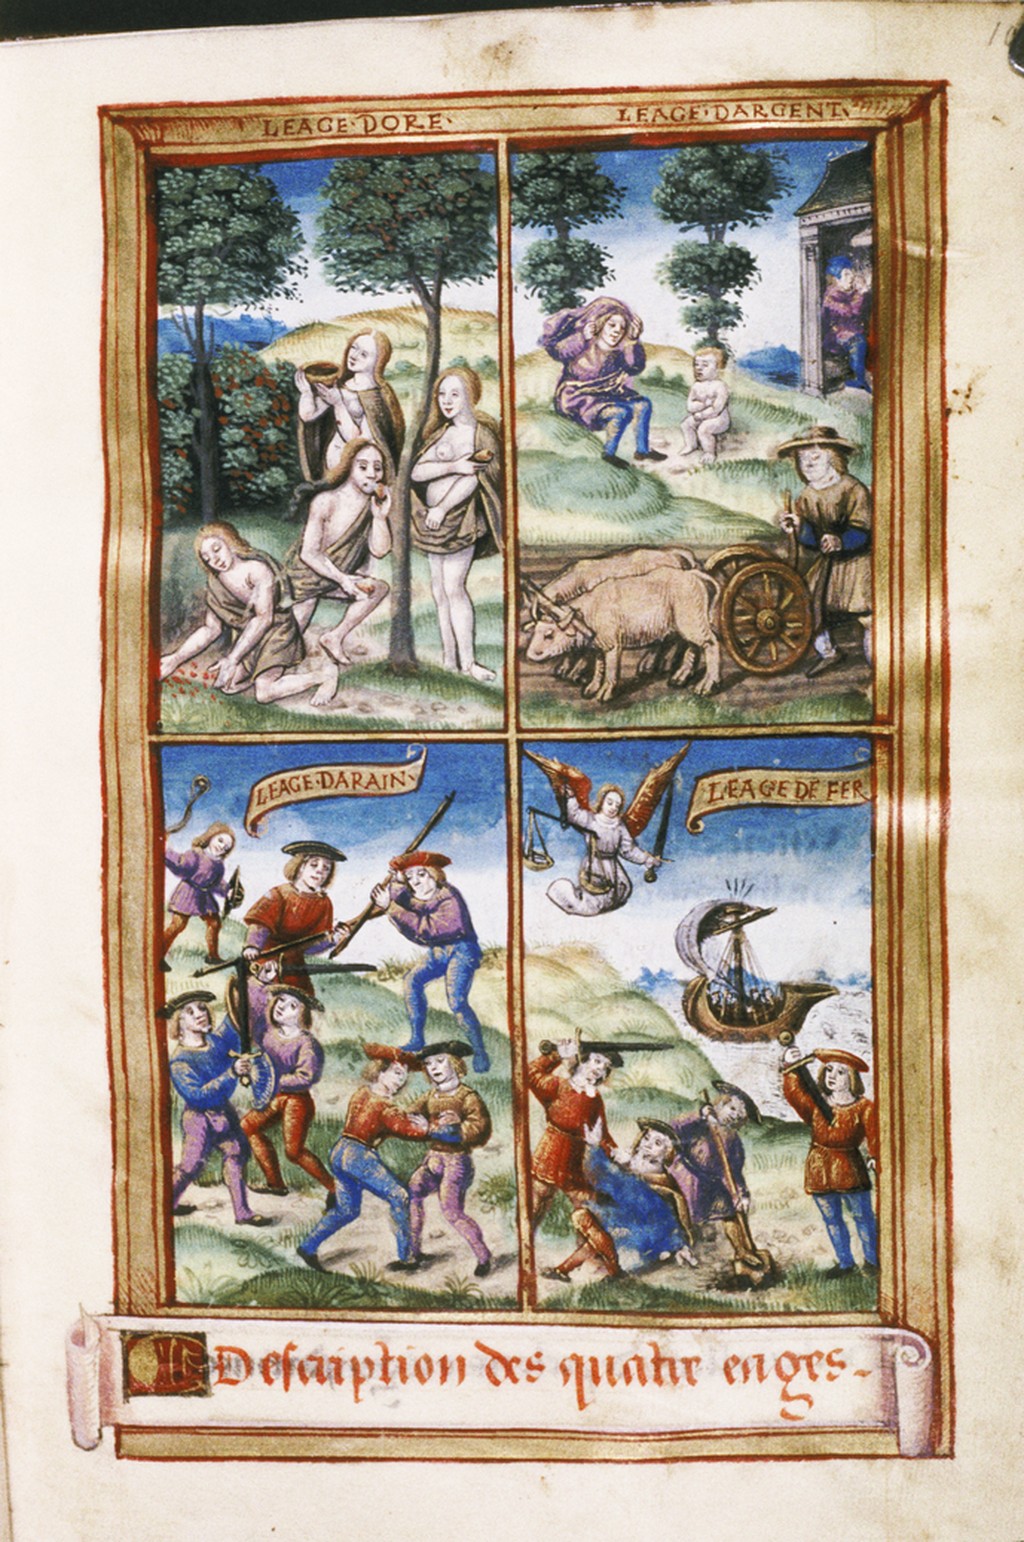 LEAGE·DORE·
LEAGE·DARGENT·
LEAGE·DARAIN·
LEAGE DE FER
Description des quatre eages